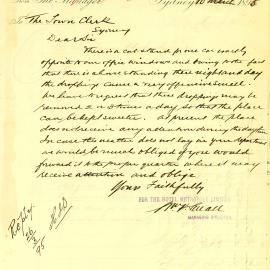 The Manager
Sydney 10 March 1895
To The Town Clerk
Sydney
Dear Sir
There is a cab stand near or nearly
opposite to our office windows and owing to the fact
that there is a horse standing there night and day
the dropping cause a very offensive smell.
We have to request that these dropping may be
removed 2 or 3 times a day so that the place
can be kept sweeter. At present the place
does not receive any attention during the daytime
In case this matter does not lay in your department
we would be much obliged if you would
forward it to the proper quarter where it may
receive attention and oblige
Yours Faithfully
FOR THE HOTEL METROPOLE LIMITED
MANAGING DIRECTOR
Reply
95